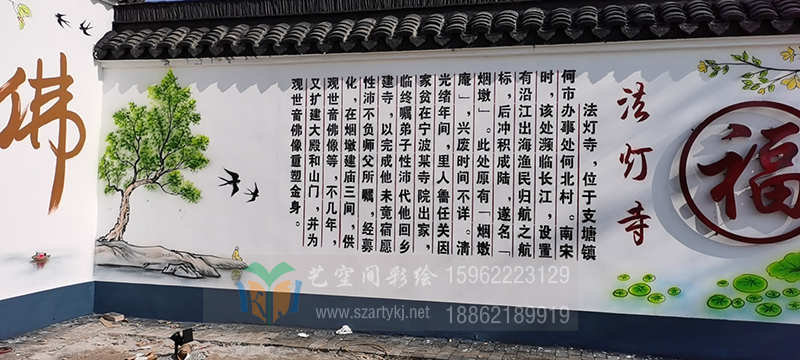 福
法灯寺
法灯寺，位于支塘镇
何市办事处何北村。南宋
时，该处濒临长江，设置
有沿江出海渔民归航之航
标，后冲积成陆，遂名「
烟墩」。此处原有「烟墩
庵」，兴废时间不详。清
光绪年间，里人鲁任关因
家贫在宁波某寺院出家，
临终嘱弟子性沛代他回乡
建寺，以完成他未竟宿愿
性沛不负师父所嘱，经募
化，在烟墩建庙三间，供
观世音佛像等，不几年，
又扩建大殿和山门，并为
观世音佛像重塑金身。
佛
艺空间彩绘 15962223129
www.szartykj.net 18862189919